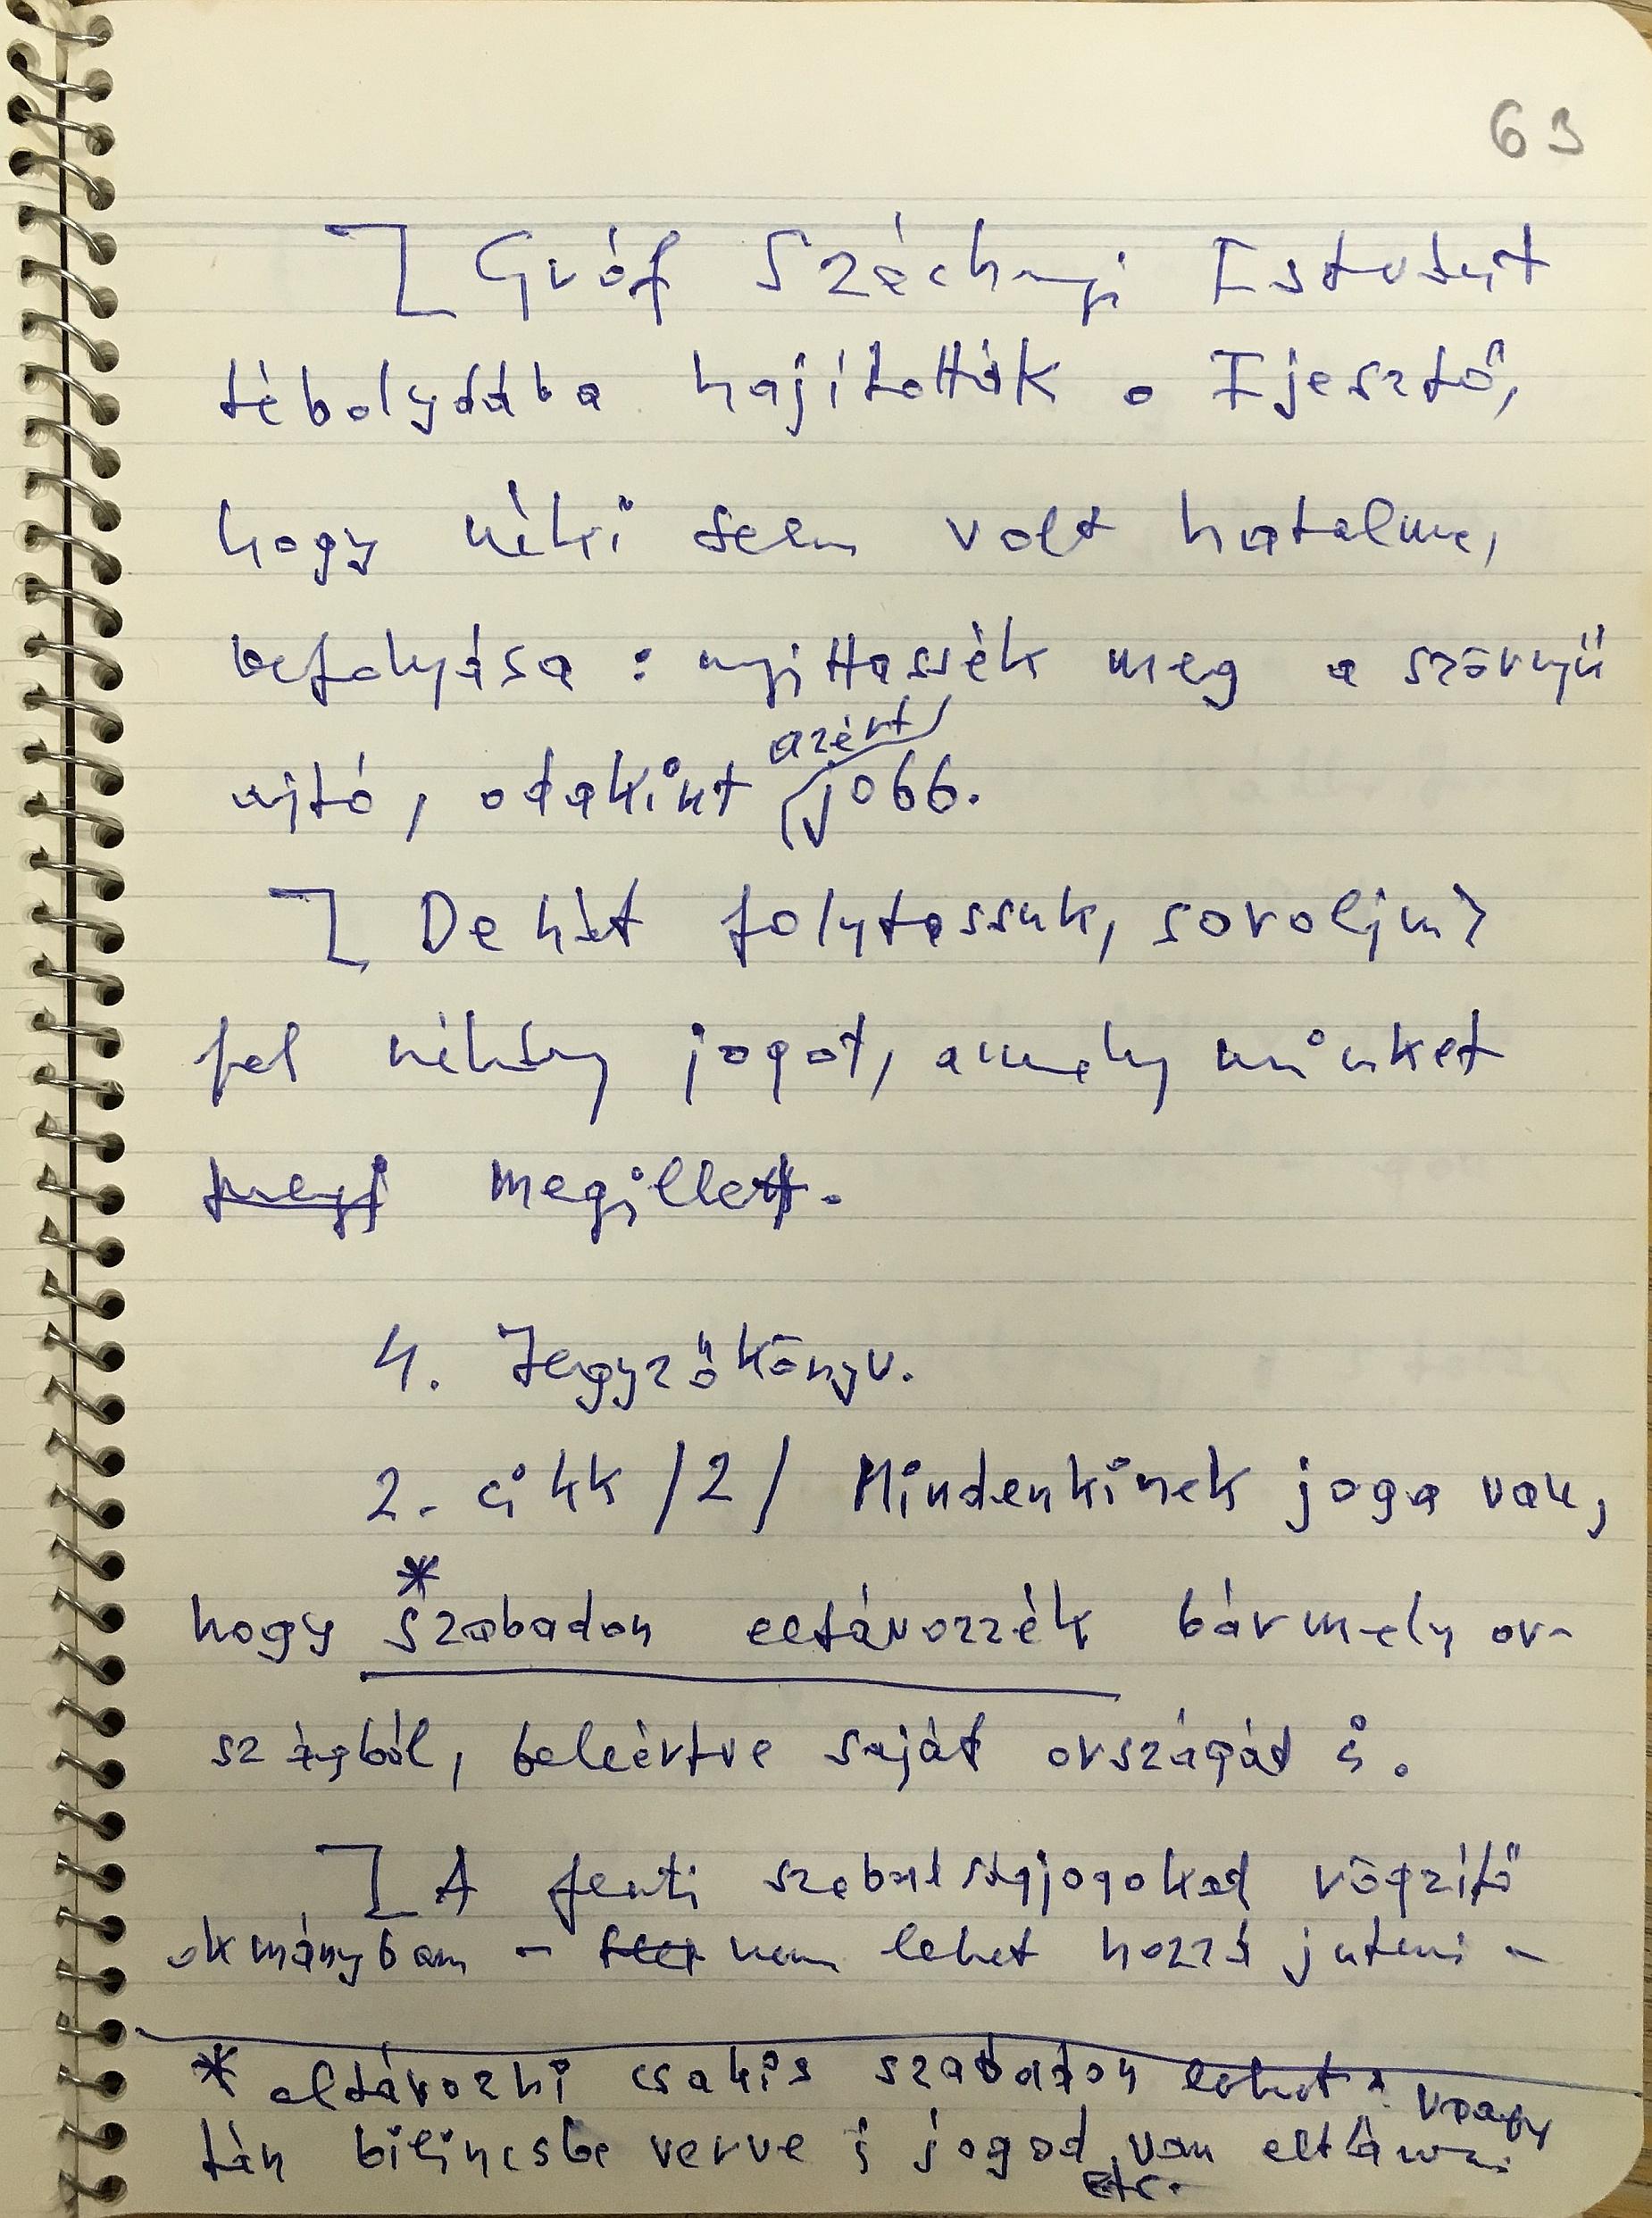 63
Gróf Széchnyi Istvánt
tébolydába hajították. Ijesztő,
hogy néki sem volt hatalma,
befolyása: nyittassék meg a szörnyű
azért
ajtó, odakint jobb.
De hát folytassuk, soroljunk
fel néhány jogot, amely minket
megillet.
4. Jegyzőkönyv.
2. cikk /2/ Mindenkinek joga van,
*
hogy szabadon eltávozzék bármely or-
szágból, beleértve saját országát is.
A fenti szabadságjogokat rögzítő
okmányban – nem lehet hozzá jutni –
* eltávozni csakis szabadon lehet. Vaagy
tán bilincsbe verve is jogod van eltávozni
etc.